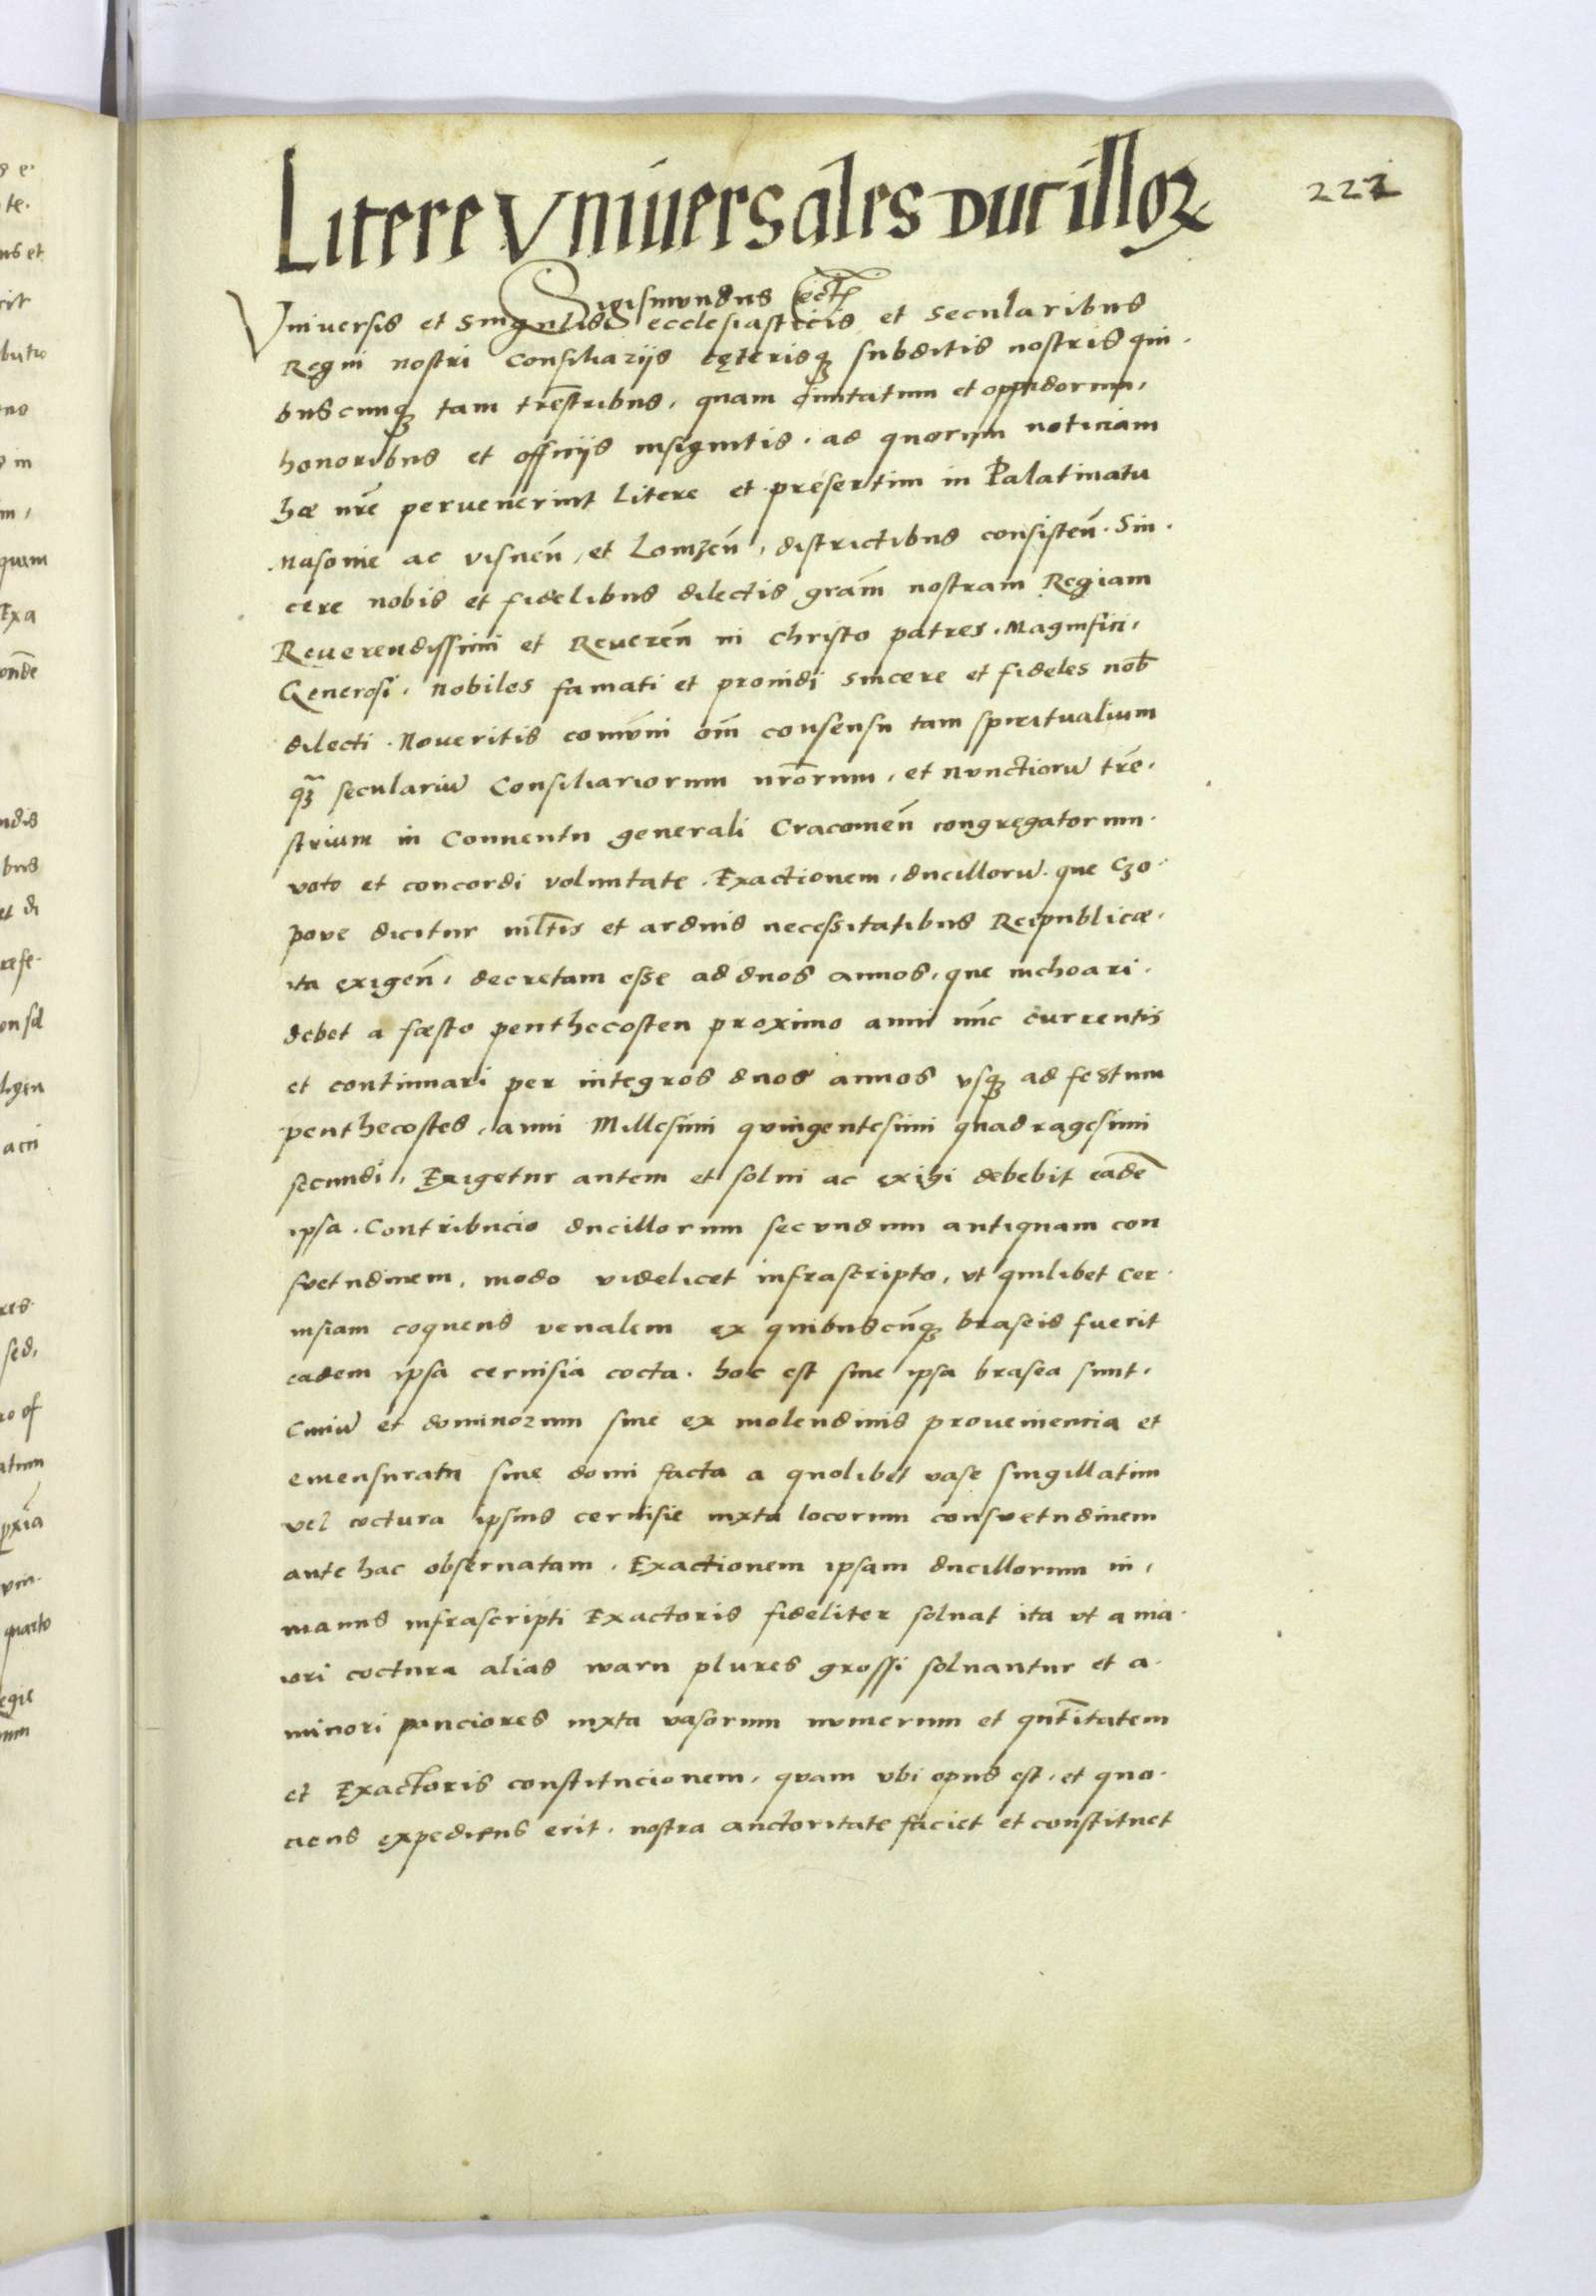 222
Litere Vniversales Ducilloꝝ
Sigismundus ect
Vniversis et Singulis ecclesiasticis et secularibus
Regni nostri Consiliariis cęterisqꝫ subditis nostris qui-
buscunqꝫ tam tr̄estribus, quam Civitatum et oppidorum,
honoribus et officiis insignitis. ad quorum noticiam
hæ nr̄e pervenerint Litere et presertim in Palatinatu
Masovie ac visneñ, et Lomzeñ, districtibus consisteñ. Sin-
cere nobis et fidelibus dilectis gra͞m nostram Regiam
Reverendissimi et Revereñ in Christo patres. Magnifici,
Generosi, Nobiles famati et providi sincere et fideles nob̄
dilecti. Noveritis com̄uni om̄ consensu tam spiritualium
qꝫ̄ seculariu͞ Consiliariorum nr̄orum, et Nunctioru͞ tr̄e-
strium in Conventu generali Cracovieñ congregatorum.
voto et concordi voluntate. Exactionem, ducilloru͞. que Czo-
pove dicitur ml̄tis et arduis necessitatibus Reipublicæ,
ita exigeñ, decretam esse ad duos annos, que inchoari.
debet a fæsto penthecosten proximo anni nu͞c currentis
et continuari per integros duos annos vsqꝫ ad festum
penthecostes, anni Millesimi quingentesimi quadragesimi
secundi, Exigetur autem et solui ac exigi debebit eade͞
ipsa. Contribucio ducillorum secundum antiquam con
suetudinem, modo videlicet infrascripto, vt quilibet cer-
uisiam coquens venalem ex quibuscu͞qꝫ braseis fuerit
eadem ipsa cervisia cocta. hoc est sive ipsa brasea sunt,
Civiu͞ et dominorum sive ex molendinis proveniencia et
emensurata sive domi facta a quolibet vase singillatim
vel coctura ipsius cervisie iuxta locorum consuetudinem
ante hac obseruatam. Exactionem ipsam ducillorum in,
manus infrascripti Exactoris fideliter soluat ita vt a ma-
iori coctura alias waru plures grossi soluantur et a.
minori panciores iuxta vasorum numerum et qnt̄itatem
et Exactoris constitucionem, quam vbi opus est, et quo-
ciens expediens erit. nostra auctoritate faciet et constituet